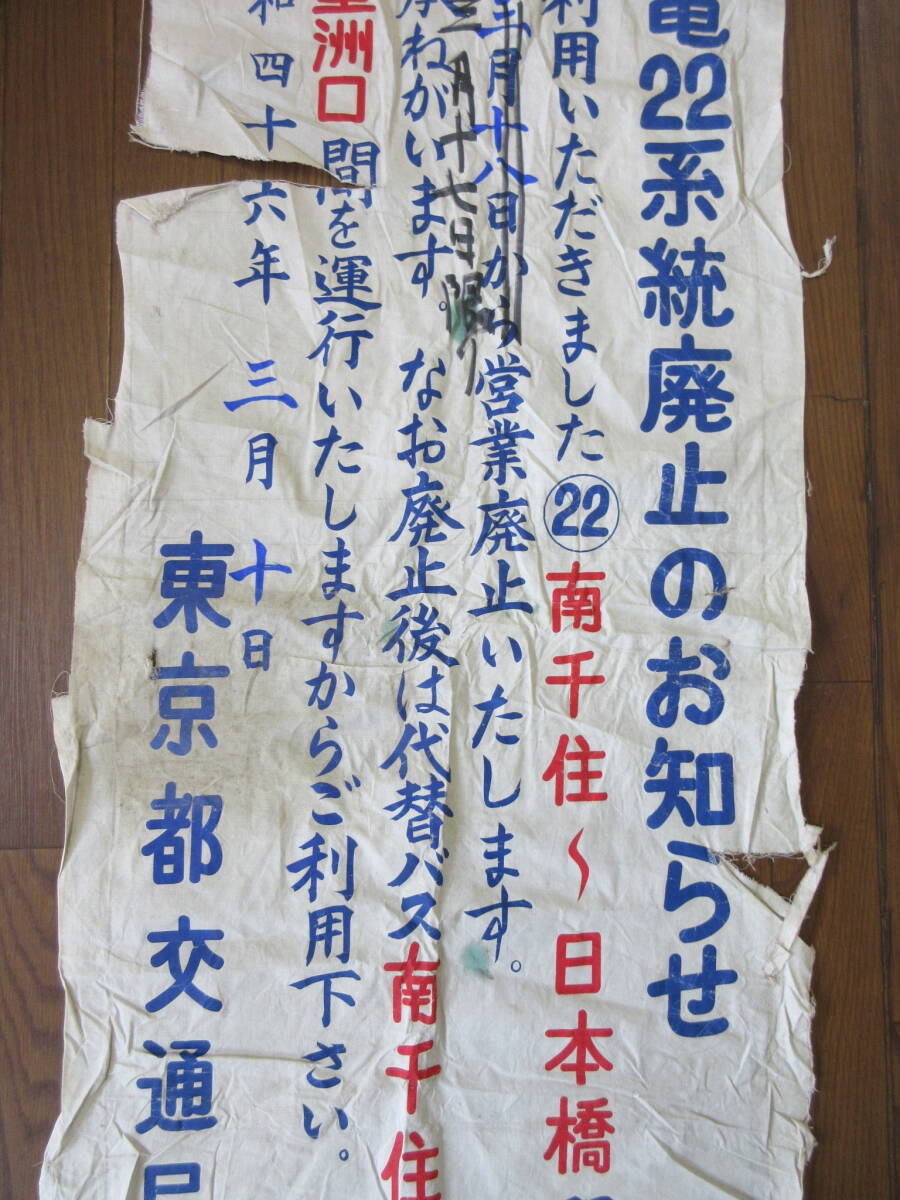 電22系統廃止のお知らせ
利用いただきました㉒南千住～日本橋
三月十八日から営業廃止いたします。
三月十七日限り
承ねがいます。なお廃止後は代替バス南千住
重洲口間を運行いたしますからご利用下さい。
和四十六年三月十日
東京都交通局